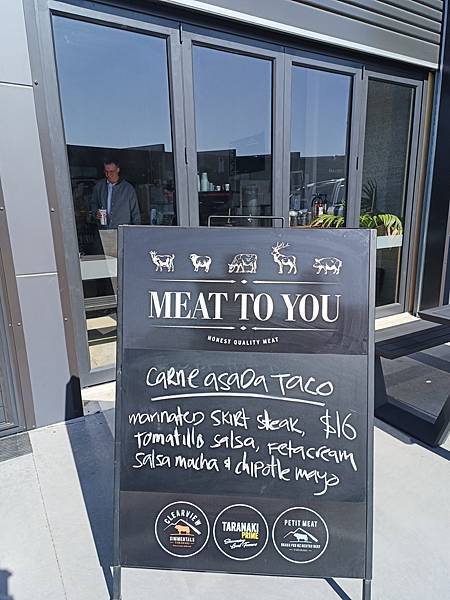 MEAT TO YOU
HONEST QUALITY MEAT
carne asada Taco
marinated skirt steak, $16
tomatillo salsa, feta cream
salsa macha & chipotle mayo
CLEARVIEW
SIMMENTALS
TARANAKI
PRIME
PETIT MEAT